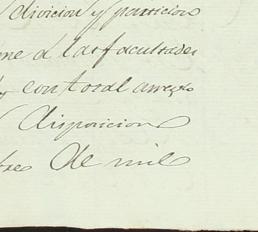 division y particion
me a las facultades
y con total arreglo
Disposicion
tres de mil